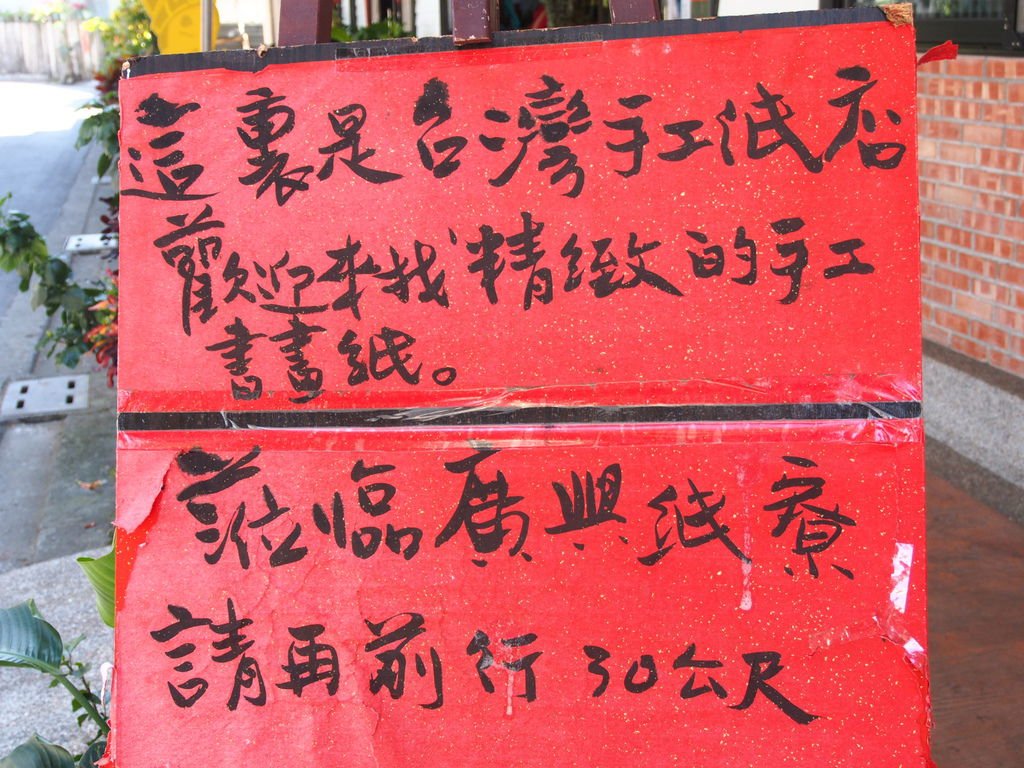 這裏是台灣手工紙店
歡迎來找精緻的手工
書畫紙。
蒞臨廣興紙寮
請再前行30公尺